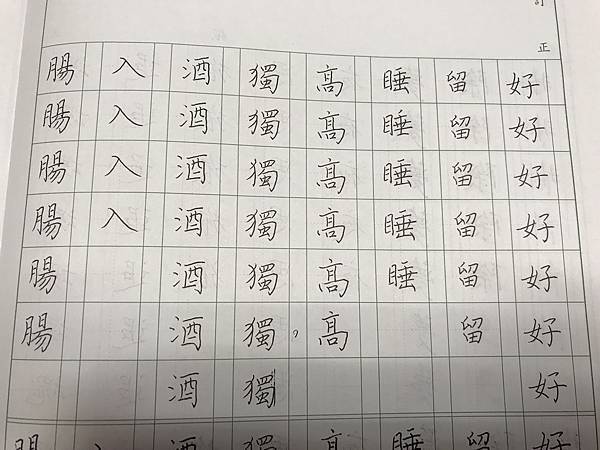 訂正
好好好好好好好
留留留留留留
睡睡睡睡睡
高高高高高高，
獨獨獨獨獨獨獨
酒酒酒酒酒酒酒
入入入入
腸腸腸腸腸腸
好留睡高獨酒入腸